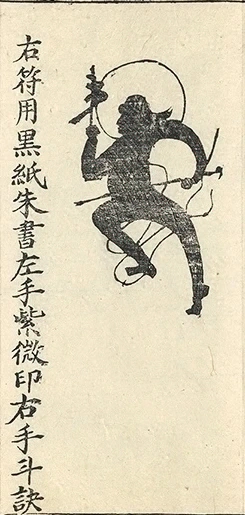 右符用黑紙朱書左手紫微印右手斗訣